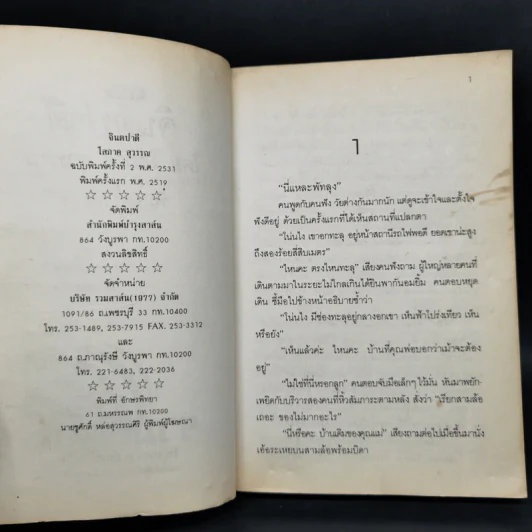 จินตปาตี
โสภาค สุวรรณ
ฉบับพิมพ์ครั้งที่ 2 พ.ศ. 2531
พิมพ์ครั้งแรก พ.ศ. 2519
☆ ☆ ☆ ☆ ☆
จัดพิมพ์
สำนักพิมพ์บำรุงสาส์น
864 วังบูรพา กท.10200
สงวนลิขสิทธิ์
☆ ☆ ☆ ☆ ☆
จัดจำหน่าย
บริษัท รวมสาส์น(1977) จำกัด
1091/86 ถ.เพชรบุรี 33 กท.10400
โทร. 253-1489, 253-7915 FAX. 253-3312
และ
864 ถ.ภาณุรังษี วังบูรพา กท.10200
โทร. 221-6483, 222-2036
☆ ☆ ☆ ☆ ☆
พิมพ์ที่ อักษรพิทยา
61 ถ.มหรรณพ กท.10200
นายชูศักดิ์ หล่อสุวรรณศิริ ผู้พิมพ์ผู้โฆษณา
1
ๅ
“นี่แหละพัทลุง”
คนพูดกับคนฟัง วัยต่างกันมากนัก แต่ดูจะเข้าใจและตั้งใจ
ฟังดีอยู่ ด้วยเป็นครั้งแรกที่ได้เห็นสถานที่แปลกตา
“โน่นไง เขาอกทะลุ อยู่หน้าสถานีรถไฟพอดี ยอดเขาน่ะสูง
ถึงสองร้อยสี่สิบเมตร”
“ไหนคะ ตรงไหนทะลุ” เสียงคนฟังถาม ผู้ใหญ่หลายคนที่
เดินตามมาในระยะไม่ไกลเกินได้ยินพากันอมยิ้ม คนตอบหยุด
เดิน ชี้มือไปข้างหน้าอธิบายซ้ำว่า
“โน่นไง มีช่องทะลุอยู่กลางอกเขา เห็นฟ้าโปร่งเทียว เห็น
หรือยัง”
“เห็นแล้วค่ะ ไหนคะ บ้านที่คุณพ่อบอกว่าเม้าจะต้อง
อยู่”
“ไม่ใช่ที่นี่หรอกลูก” คนตอบจับมือเล็กๆ ไว้มั่น หันมาพยัก-
เพยิดกับบริวารสองคนที่หิ้วสัมภาระตามหลัง สั่งว่า “เรียกสามล้อ
เถอะ ของไม่มากอะไร”
“นี่หรือคะ บ้านเดิมของคุณแม่” เสียงถามต่อไปเมื่อขึ้นมานั่ง
เท้อระเหยบนสามล้อพร้อมบิดา